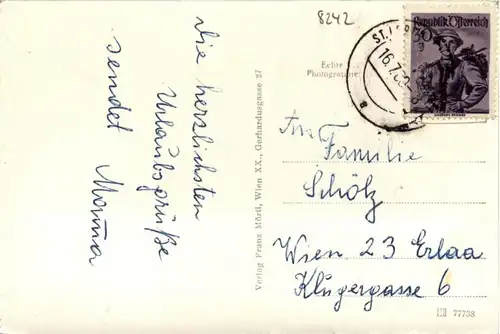 die herzlichsten
Urlaubsgrüße
sendet Mama
8242
Echte
Photographie
Verlag Franz Mörtl, Wien XX., Gerhardusgasse 27
Republik Österreich
30
16.7.
An
Familie
Schölz
Wien 23 Erlaa
Klugergasse 6
77738